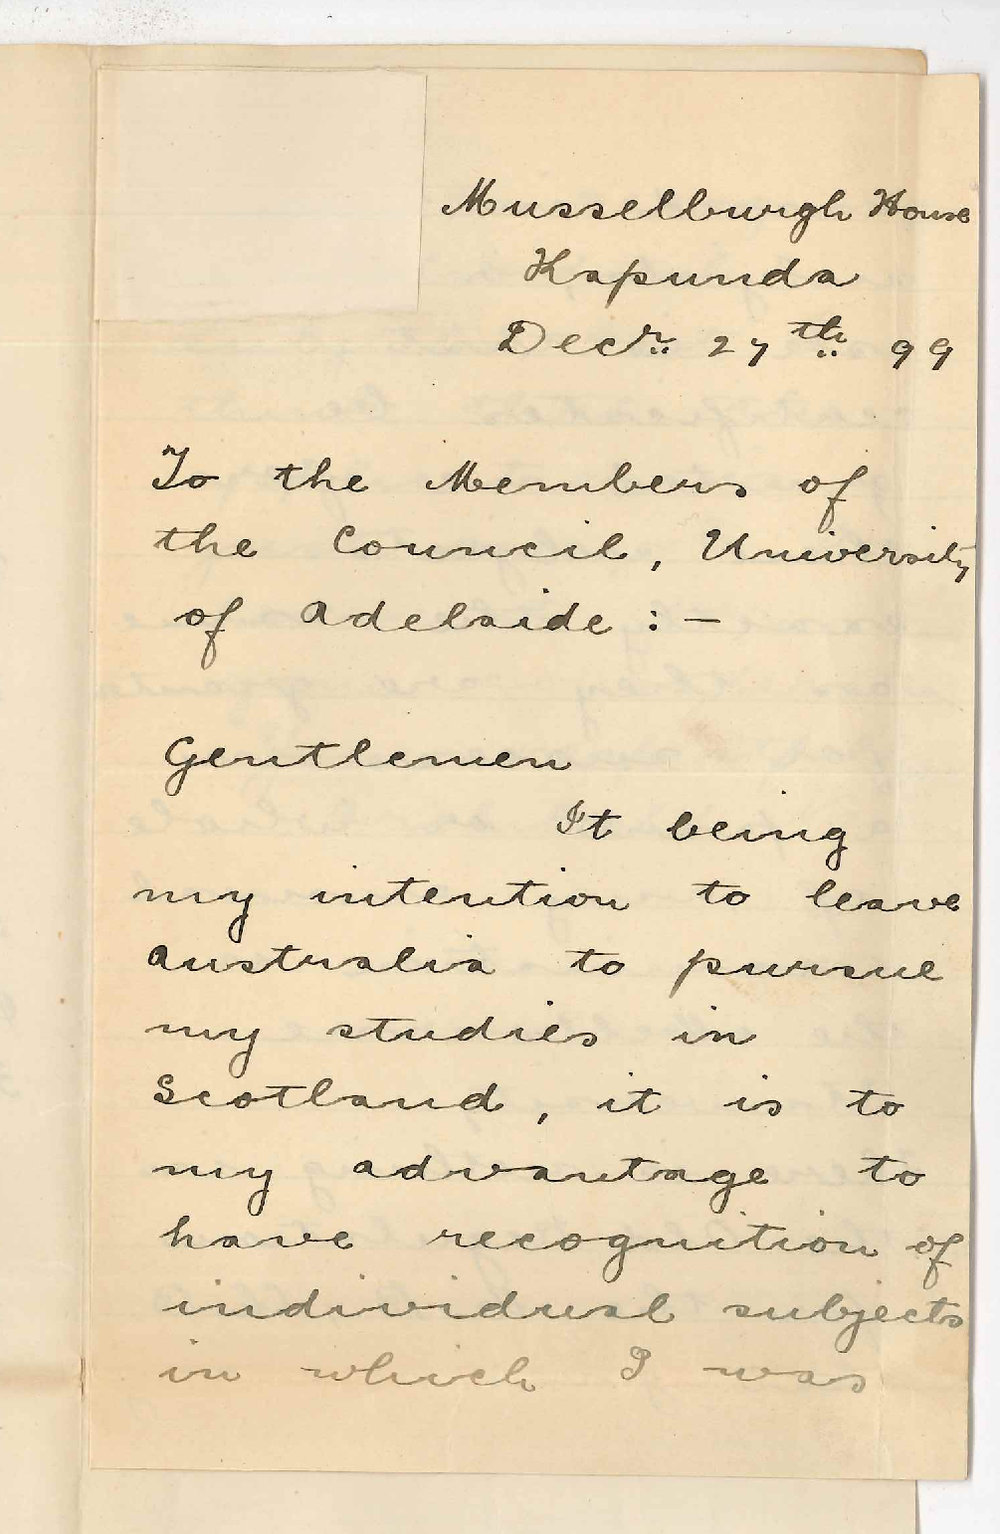 Musselburgh House
Kapunda
Decr. 27th 99
To the Members of
the Council, University
of Adelaide : —
Gentlemen
It being
my intention to leave
Australia to pursue
my studies in
Scotland, it is to
my advantage to
have recognition of
individual subjects
in which I was